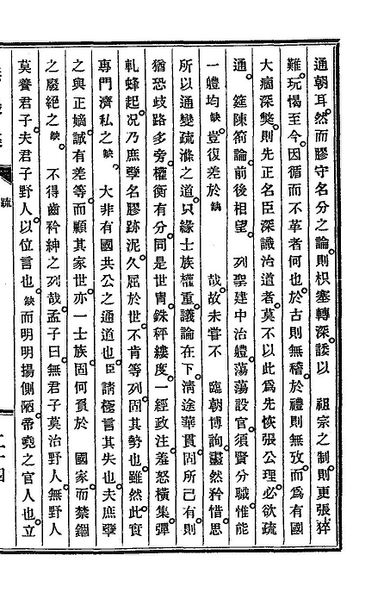 通朝耳然而膠守名分之論則枳塞轉深諉以 祖宗之制則更張猝
難玩愒至今因循而不革者何也於古則無稽於禮則無攷而爲有國
大痼深獘則先正名臣深識治道者莫不以此爲先恢張公理必欲疏
通 筵陳箚論前後相望 列聖建中治體蕩蕩設官須賢分職惟能
一體均缺豈復差於缺 哉故未嘗不 臨朝博詢盡然矜惜思
所以通變疏滌之道只緣士族權重議論在下淸途華貫固所已有則
猶恐歧路多旁權衡有分同是世冑銖秤縷度一經政注羞怒橫集彈
軋蜂起况乃庶孼名膠跡泥久屈於世不肯等列固其勢也雖然此實
專門濟私之缺 大非有國共公之通道也臣諸極言其失也夫庶孼
之與正嫡誠有差等而顧其家世亦一士族固何貟於 國家而禁錮
之廢絶之缺 不得齒衿紳之列哉孟子曰無君子莫治野人無野人
莫養君子夫君子野人以位言也缺而明明揚側陋帝堯之官人也立
疏
二十四